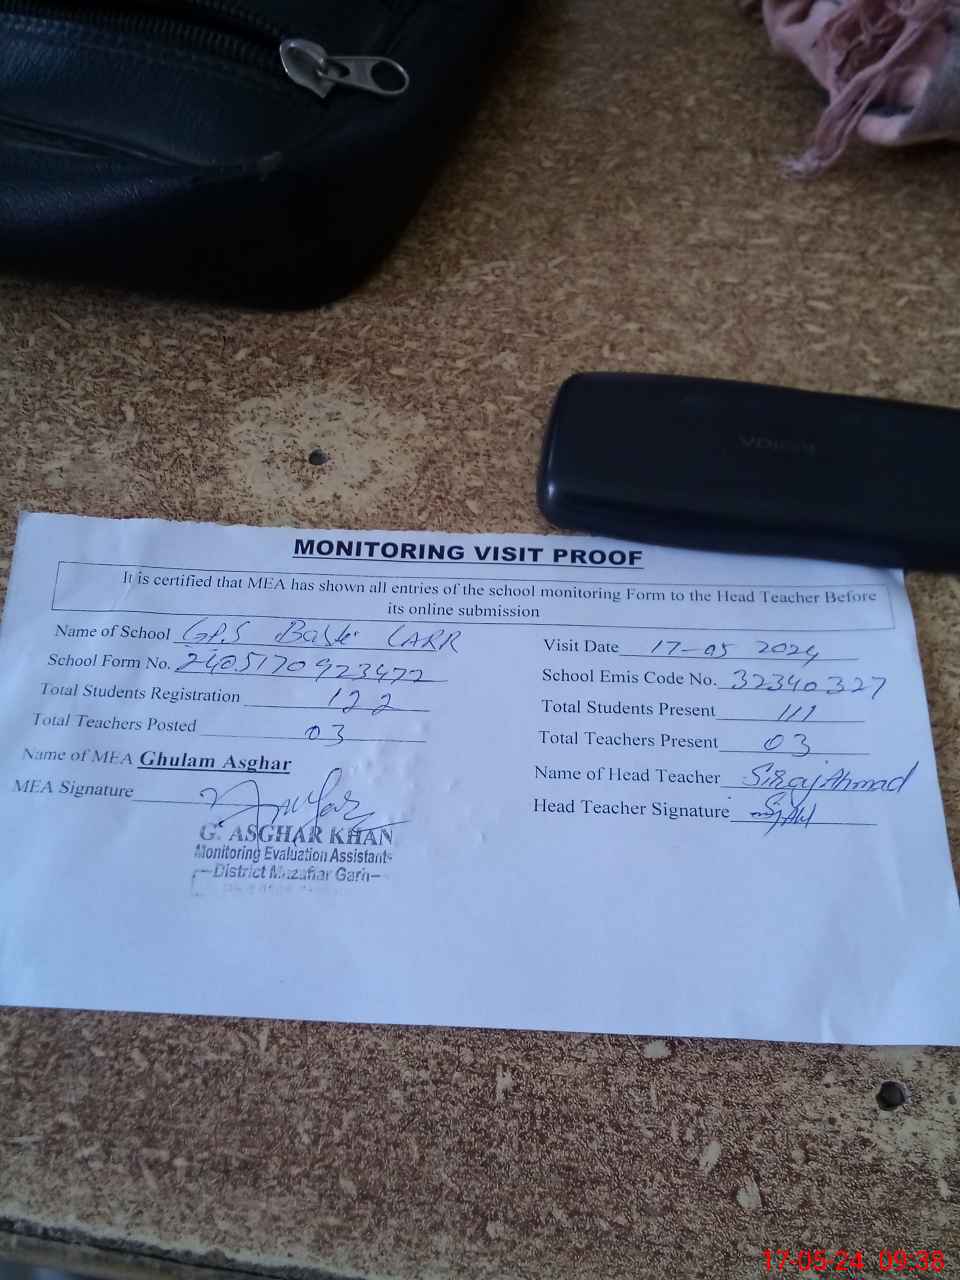 NOKIA
MONITORING VISIT PROOF
It is certified that MEA has shown all entries of the school monitoring Form to the Head Teacher Before
its online submission
Name of School GPS LARR
School Form No. 240517092347
Total Students Registration 122
Total Teachers Posted 03
Name of MEA Ghulam Asghar
MEA Signature
G. ASGHAR KHAN
Monitoring Evaluation Assistant
District Muzaffar Garh
Visit Date 17-05 2024
School Emis Code No. 32340327
Total Students Present 111
Total Teachers Present 03
Name of Head Teacher Siraj Ahmad
Head Teacher Signature
17-05-24 09:38